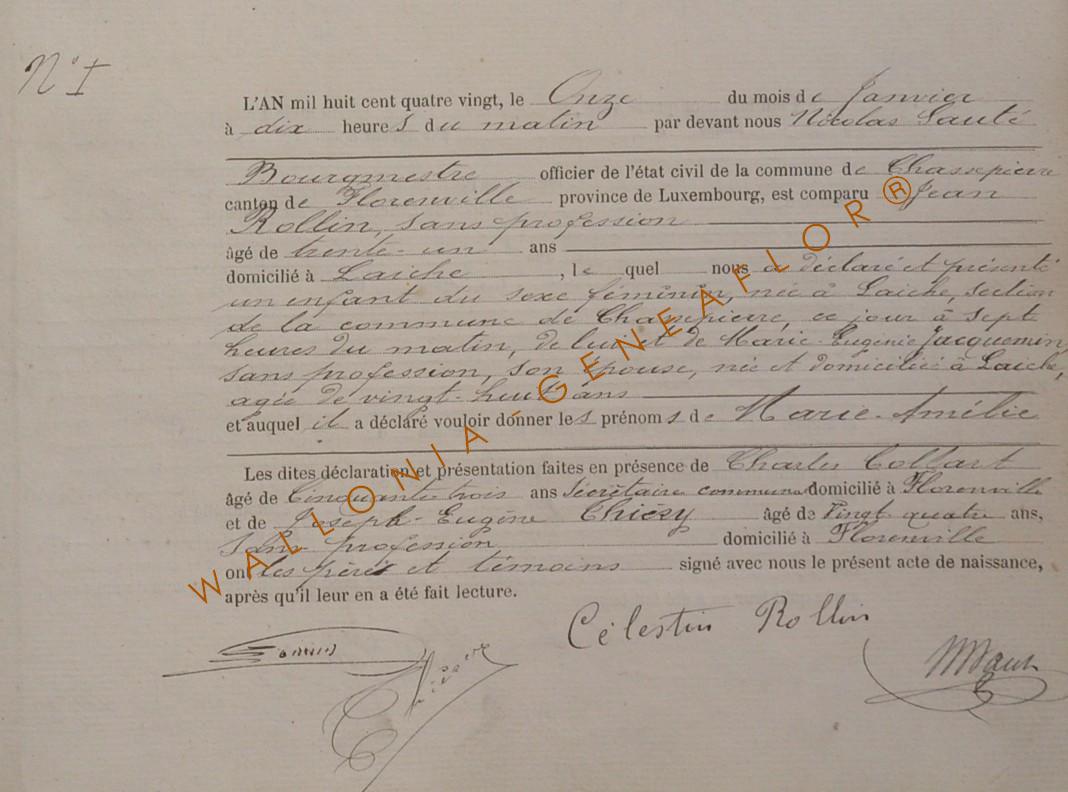 N° I
L'AN mil huit cent quatre vingt, le Onze du mois de Janvier
à dix heures du matin par devant nous Nicolas Sauté
Bourgmestre officier de l'état civil de la commune de Chassepierre
canton de Florenville province de Luxembourg, est comparu Jean
Rollin, sans profession
âgé de trente-un ans
domicilié à Laiche, lequel nous a déclaré et présenté
un enfant du sexe féminin, née à Laiche, section
de la commune de Chassepierre, ce jour à sept
heures du matin, de lui et de Marie-Eugénie Jacquemin,
sans profession, son épouse, née et domiciliée à Laiche,
agée de vingt-huit ans
et auquel il a déclaré vouloir donner les prénoms de Marie-Amélie
Les dites déclaration et présentation faites en présence de Charles Collart
âgé de Cinquante trois ans Secrétaire communal domicilié à Florenville
et de Joseph-Eugène Thiéry âgé de Vingt quatre ans,
Sans profession domicilié à Florenville
ont les père et témoins signé avec nous le présent acte de naissance,
après qu'il leur en a été fait lecture.
Célestin Rollin
WALLONIA-GENEAFLOR®